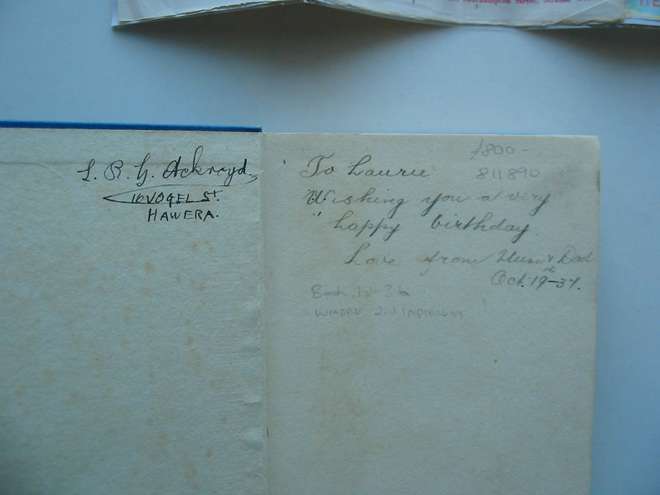 L. R. G. Ackroyd,
16 VOGEL ST.
HAWERA.
To Laurie
Wishing you a very
happy birthday
Love from Mum & Dad
Oct. 19th - 37.
£800-
811890